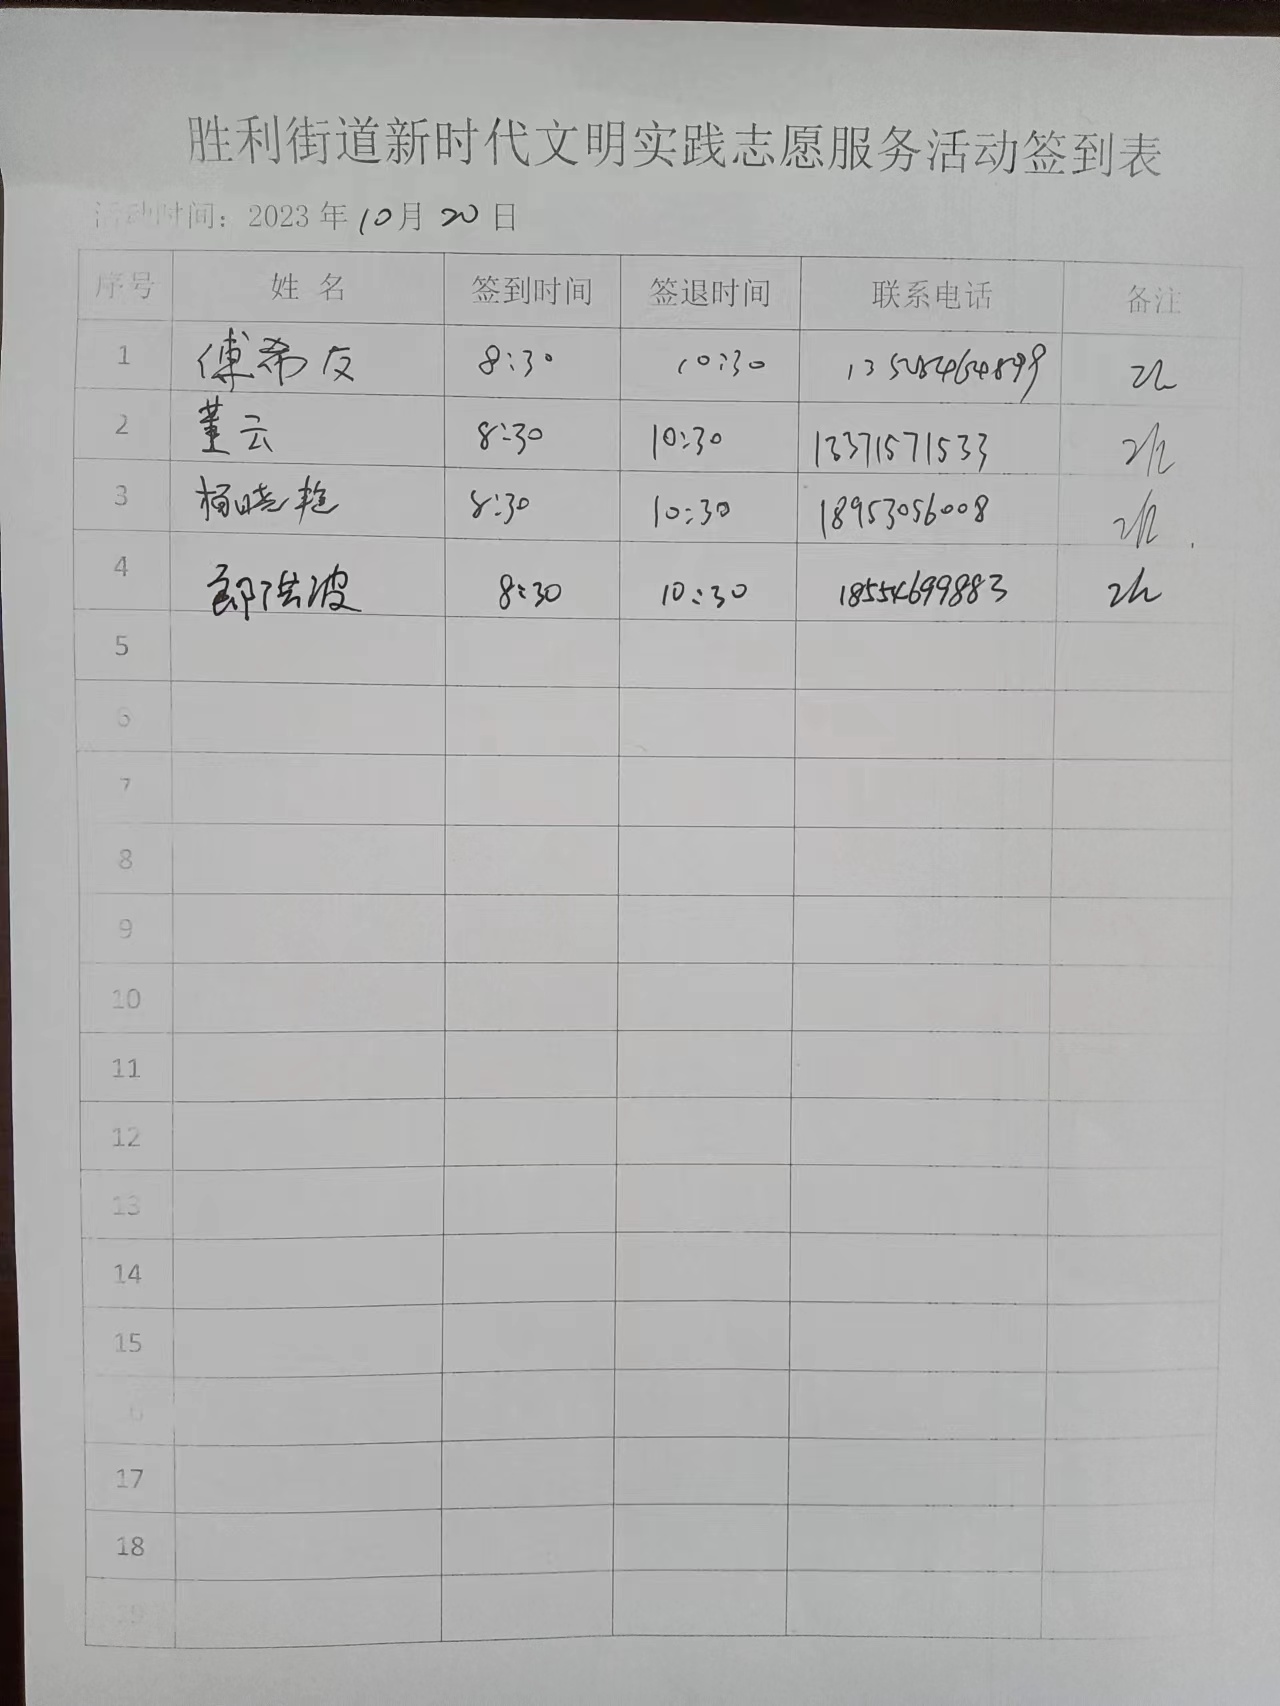 胜利街道新时代文明实践志愿服务活动签到表
活动时间：2023年10月20日
序号 姓 名 签到时间 签退时间 联系电话 备注
1 傅希友 8:30 10:30 2h
2 董云 8:30 10:30 13371571533 2h
3 杨晓艳 8:30 10:30 18953056008 2h
4 郎洪波 8:30 10:30 18554699883 2h
5
6
7
8
9
10
11
12
13
14
15
6
17
18
19